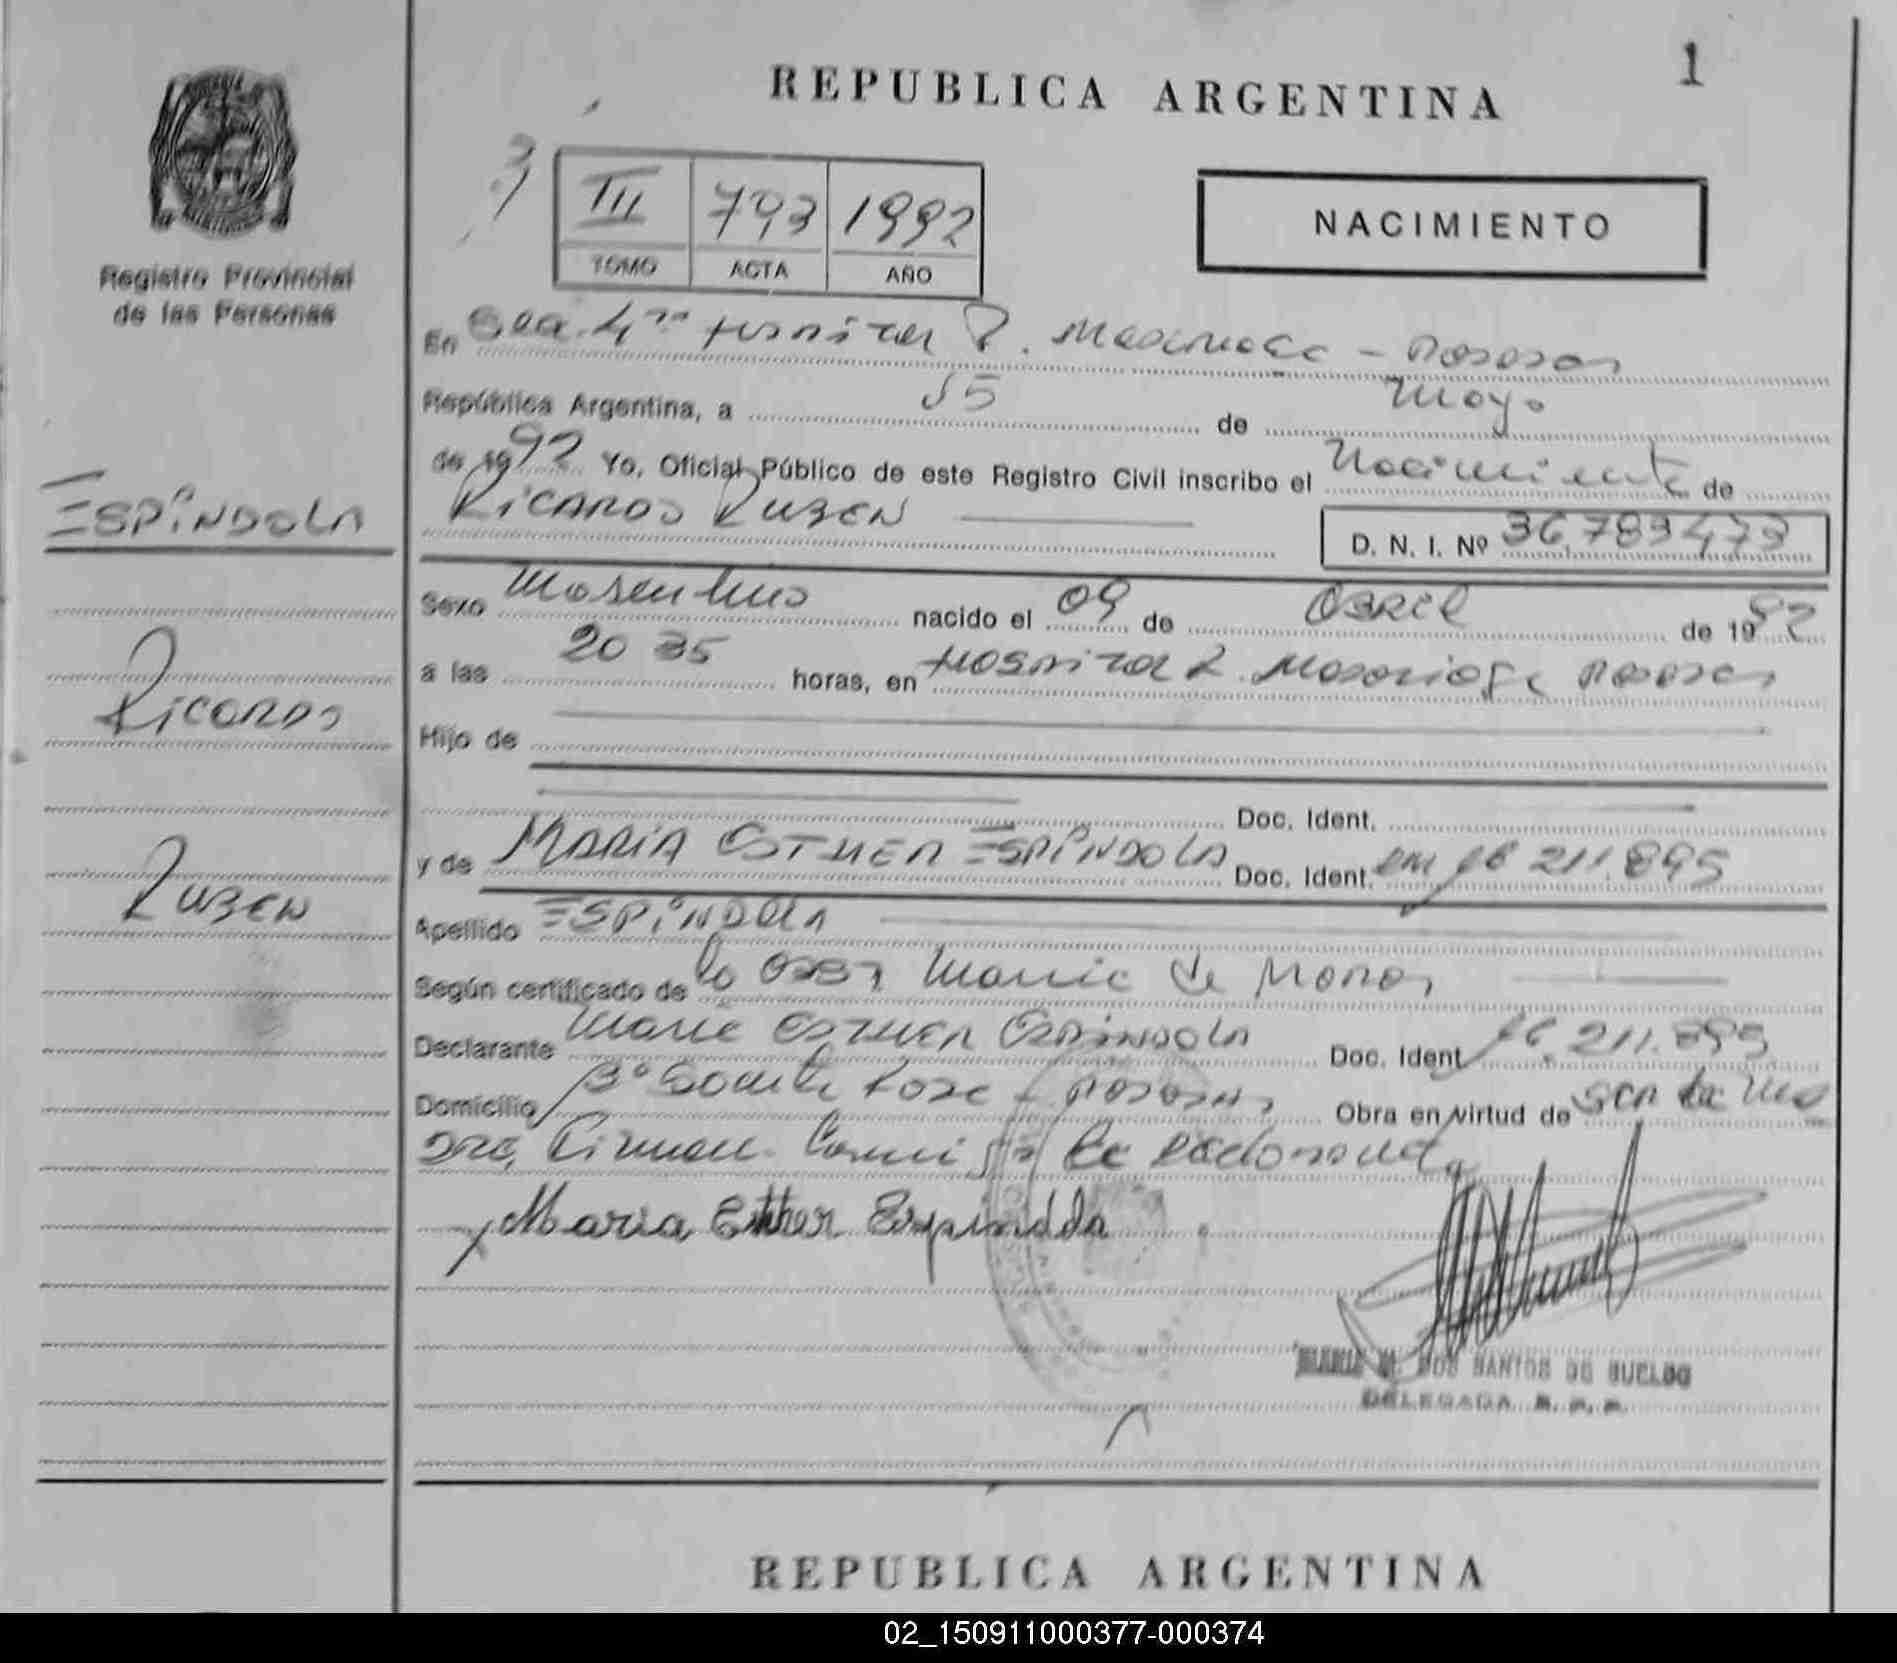 REPUBLICA ARGENTINA
1
III 793 1992
TOMO ACTA AÑO
NACIMIENTO
Registro Provincial
de las Personas
ESPÍNDOLA
Ricardo
Ruben
En R. Madariaga - Posadas
República Argentina, a 15 de Mayo
de 1992 Yo, Oficial Público de este Registro Civil inscribo el Nacimiento de
Ricardo Ruben D. N. I. Nº 36.783.473
Sexo Masculino nacido el 09 de Abril de 1992
a las 20 35 horas, en Hospital R. Madariaga Posadas
Hijo de
Doc. Ident.
y de MARÍA ESTHER ESPÍNDOLA Doc. Ident. 16 211.895
Apellido ESPÍNDOLA
Según certificado de la
Declarante Maria Esther Espindola Doc. Ident 16.211.895
Domicilio Bº Santa Rosa - Posadas Obra en virtud de ser la ma
dre, Firman
Maria Esther Espindola
MARIA M. DOS SANTOS DE SUELDO
DELEGADA R. P. P.
REPUBLICA ARGENTINA
02_150911000377-000374